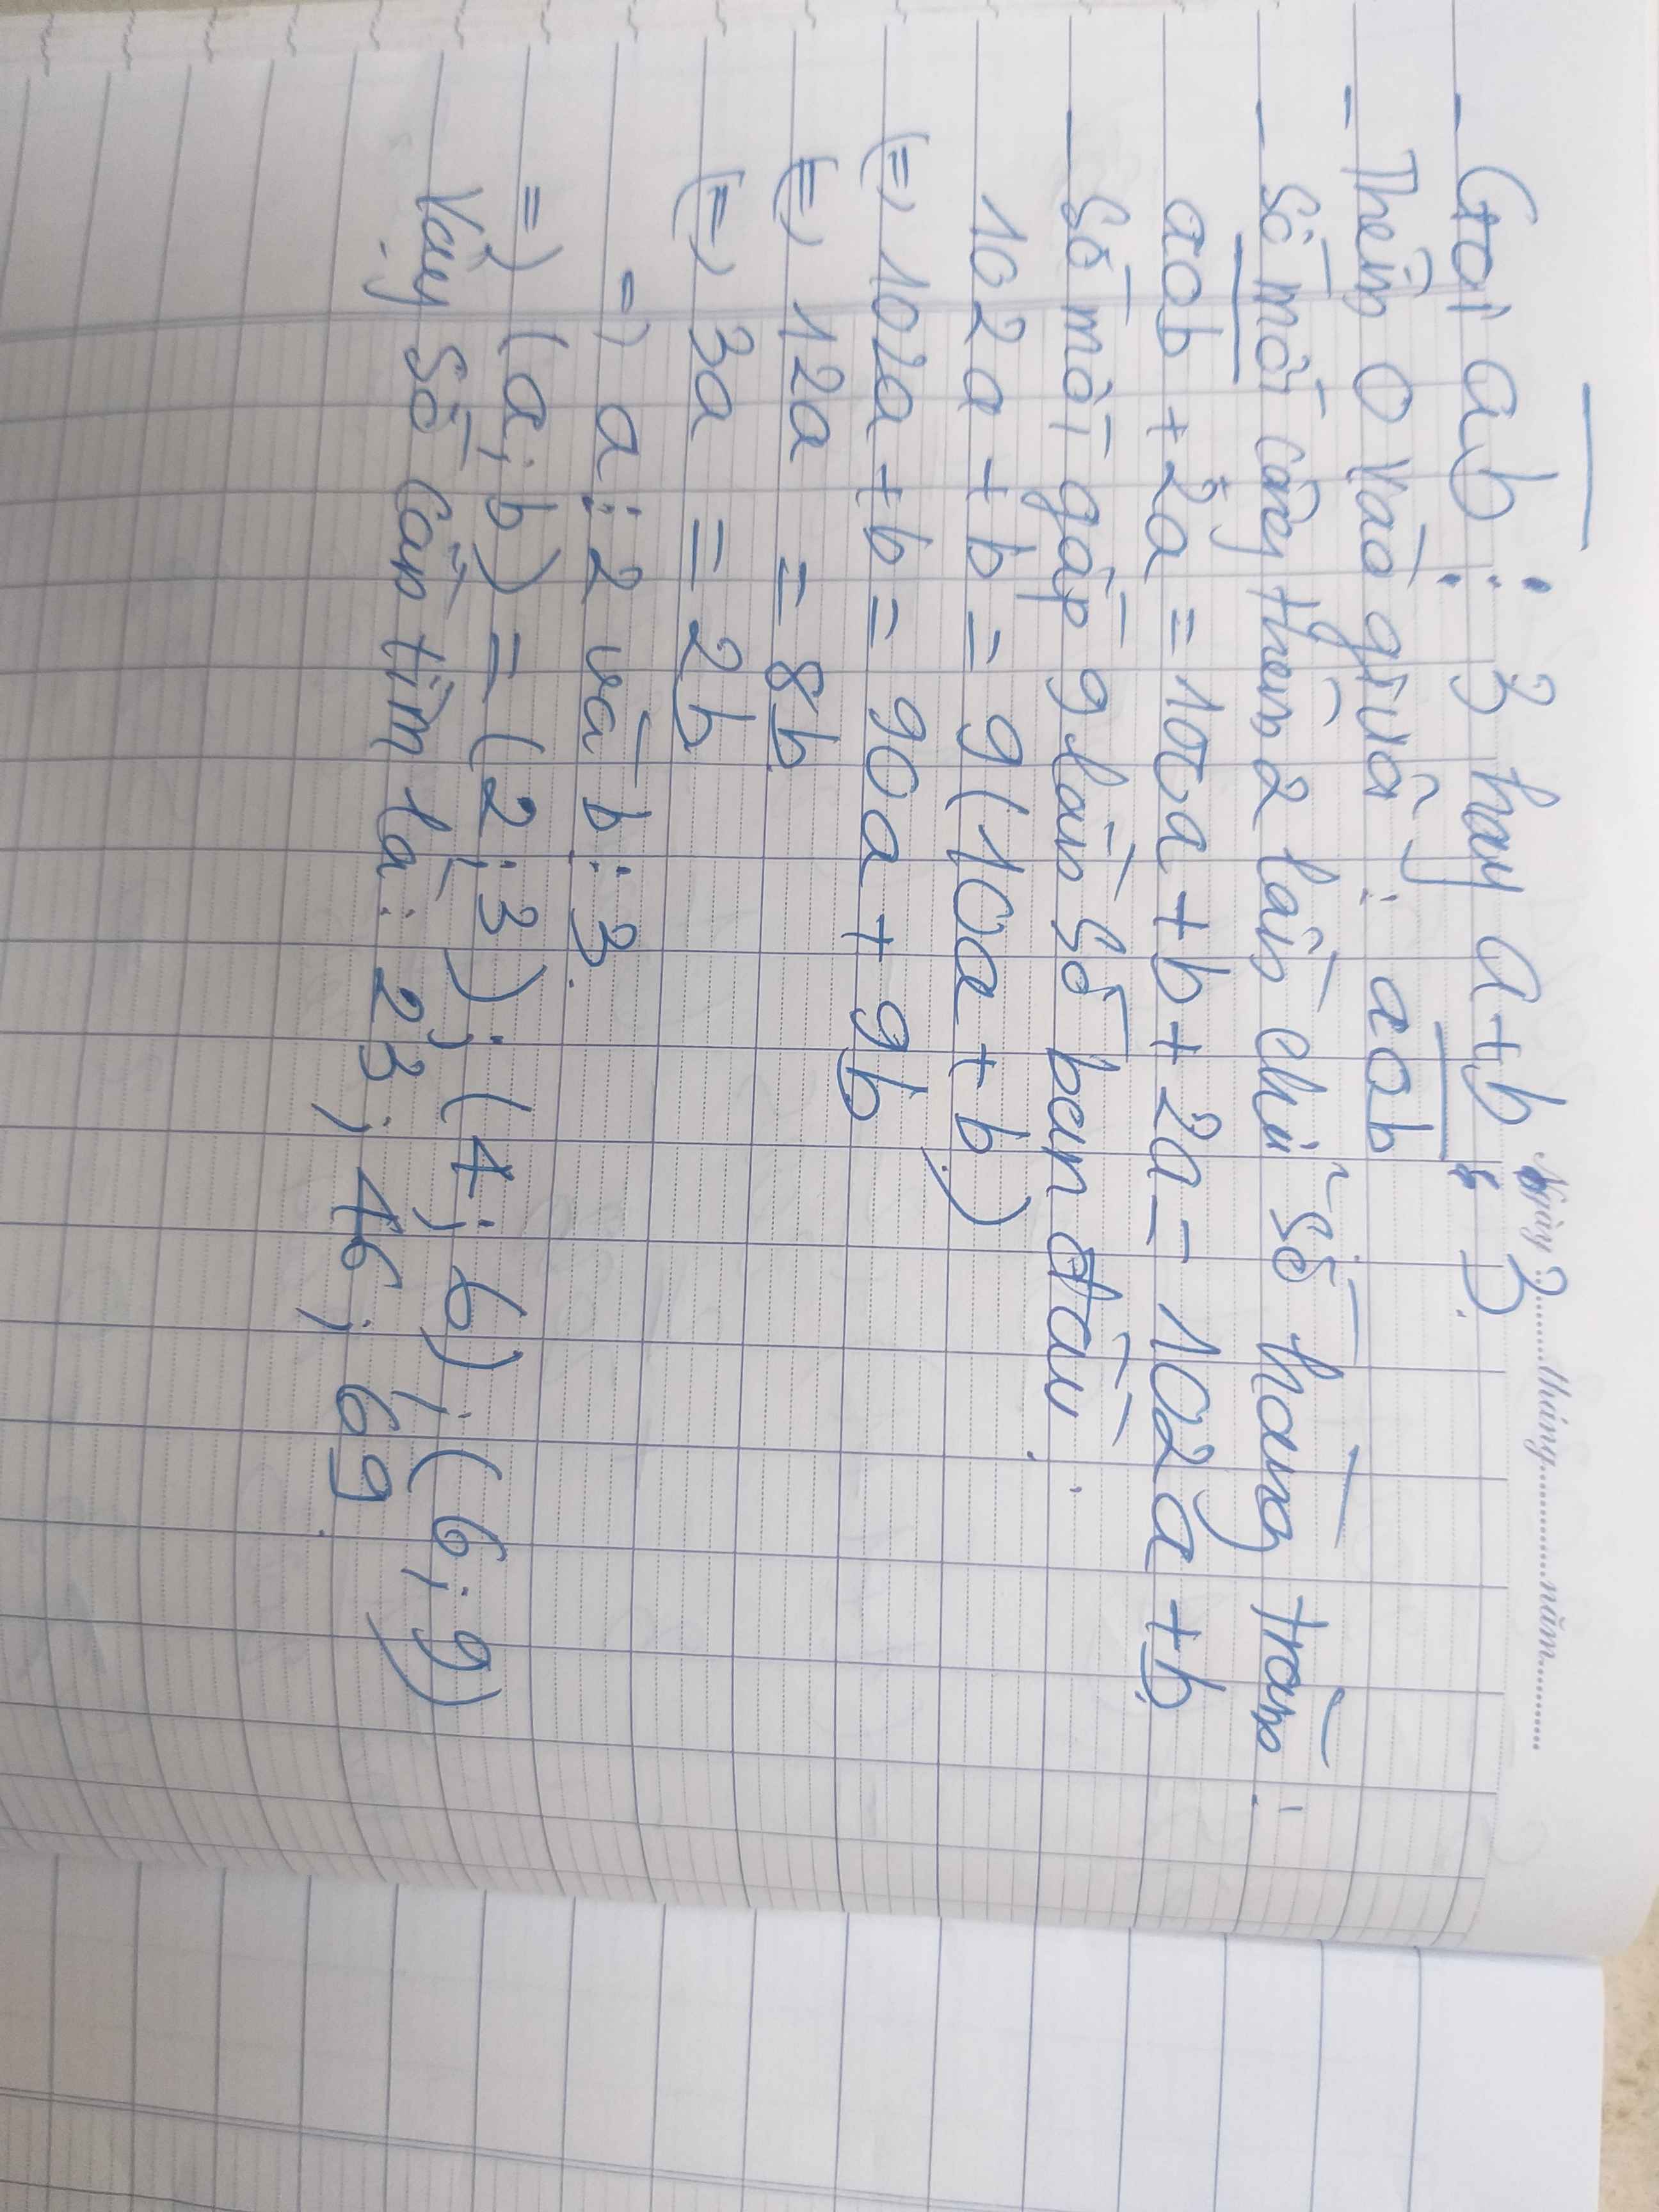 Ngày 2......tháng............năm............
- Gọi ab ⋮ 3 hay a+b ⋮ 3.
- Thêm 0 vào giữa : a0b
- Số mới cộng thêm 2 lần chữ số hàng trăm:
a0b + 2a = 100a + b + 2a = 102a + b
- Số mới gấp 9 lần số ban đầu.
102a + b = 9(10a + b)
(=) 102a + b = 90a + 9b
(=) 12a = 8b
(=) 3a = 2b
=) a ⋮ 2 và b ⋮ 3.
=) (a; b) = (2; 3); (4; 6); (6; 9)
Vậy số cần tìm là: 23; 46; 69.